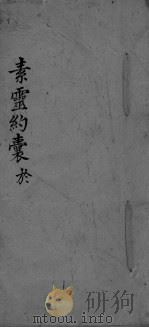 素靈約囊 於
mtoou.info
研狗